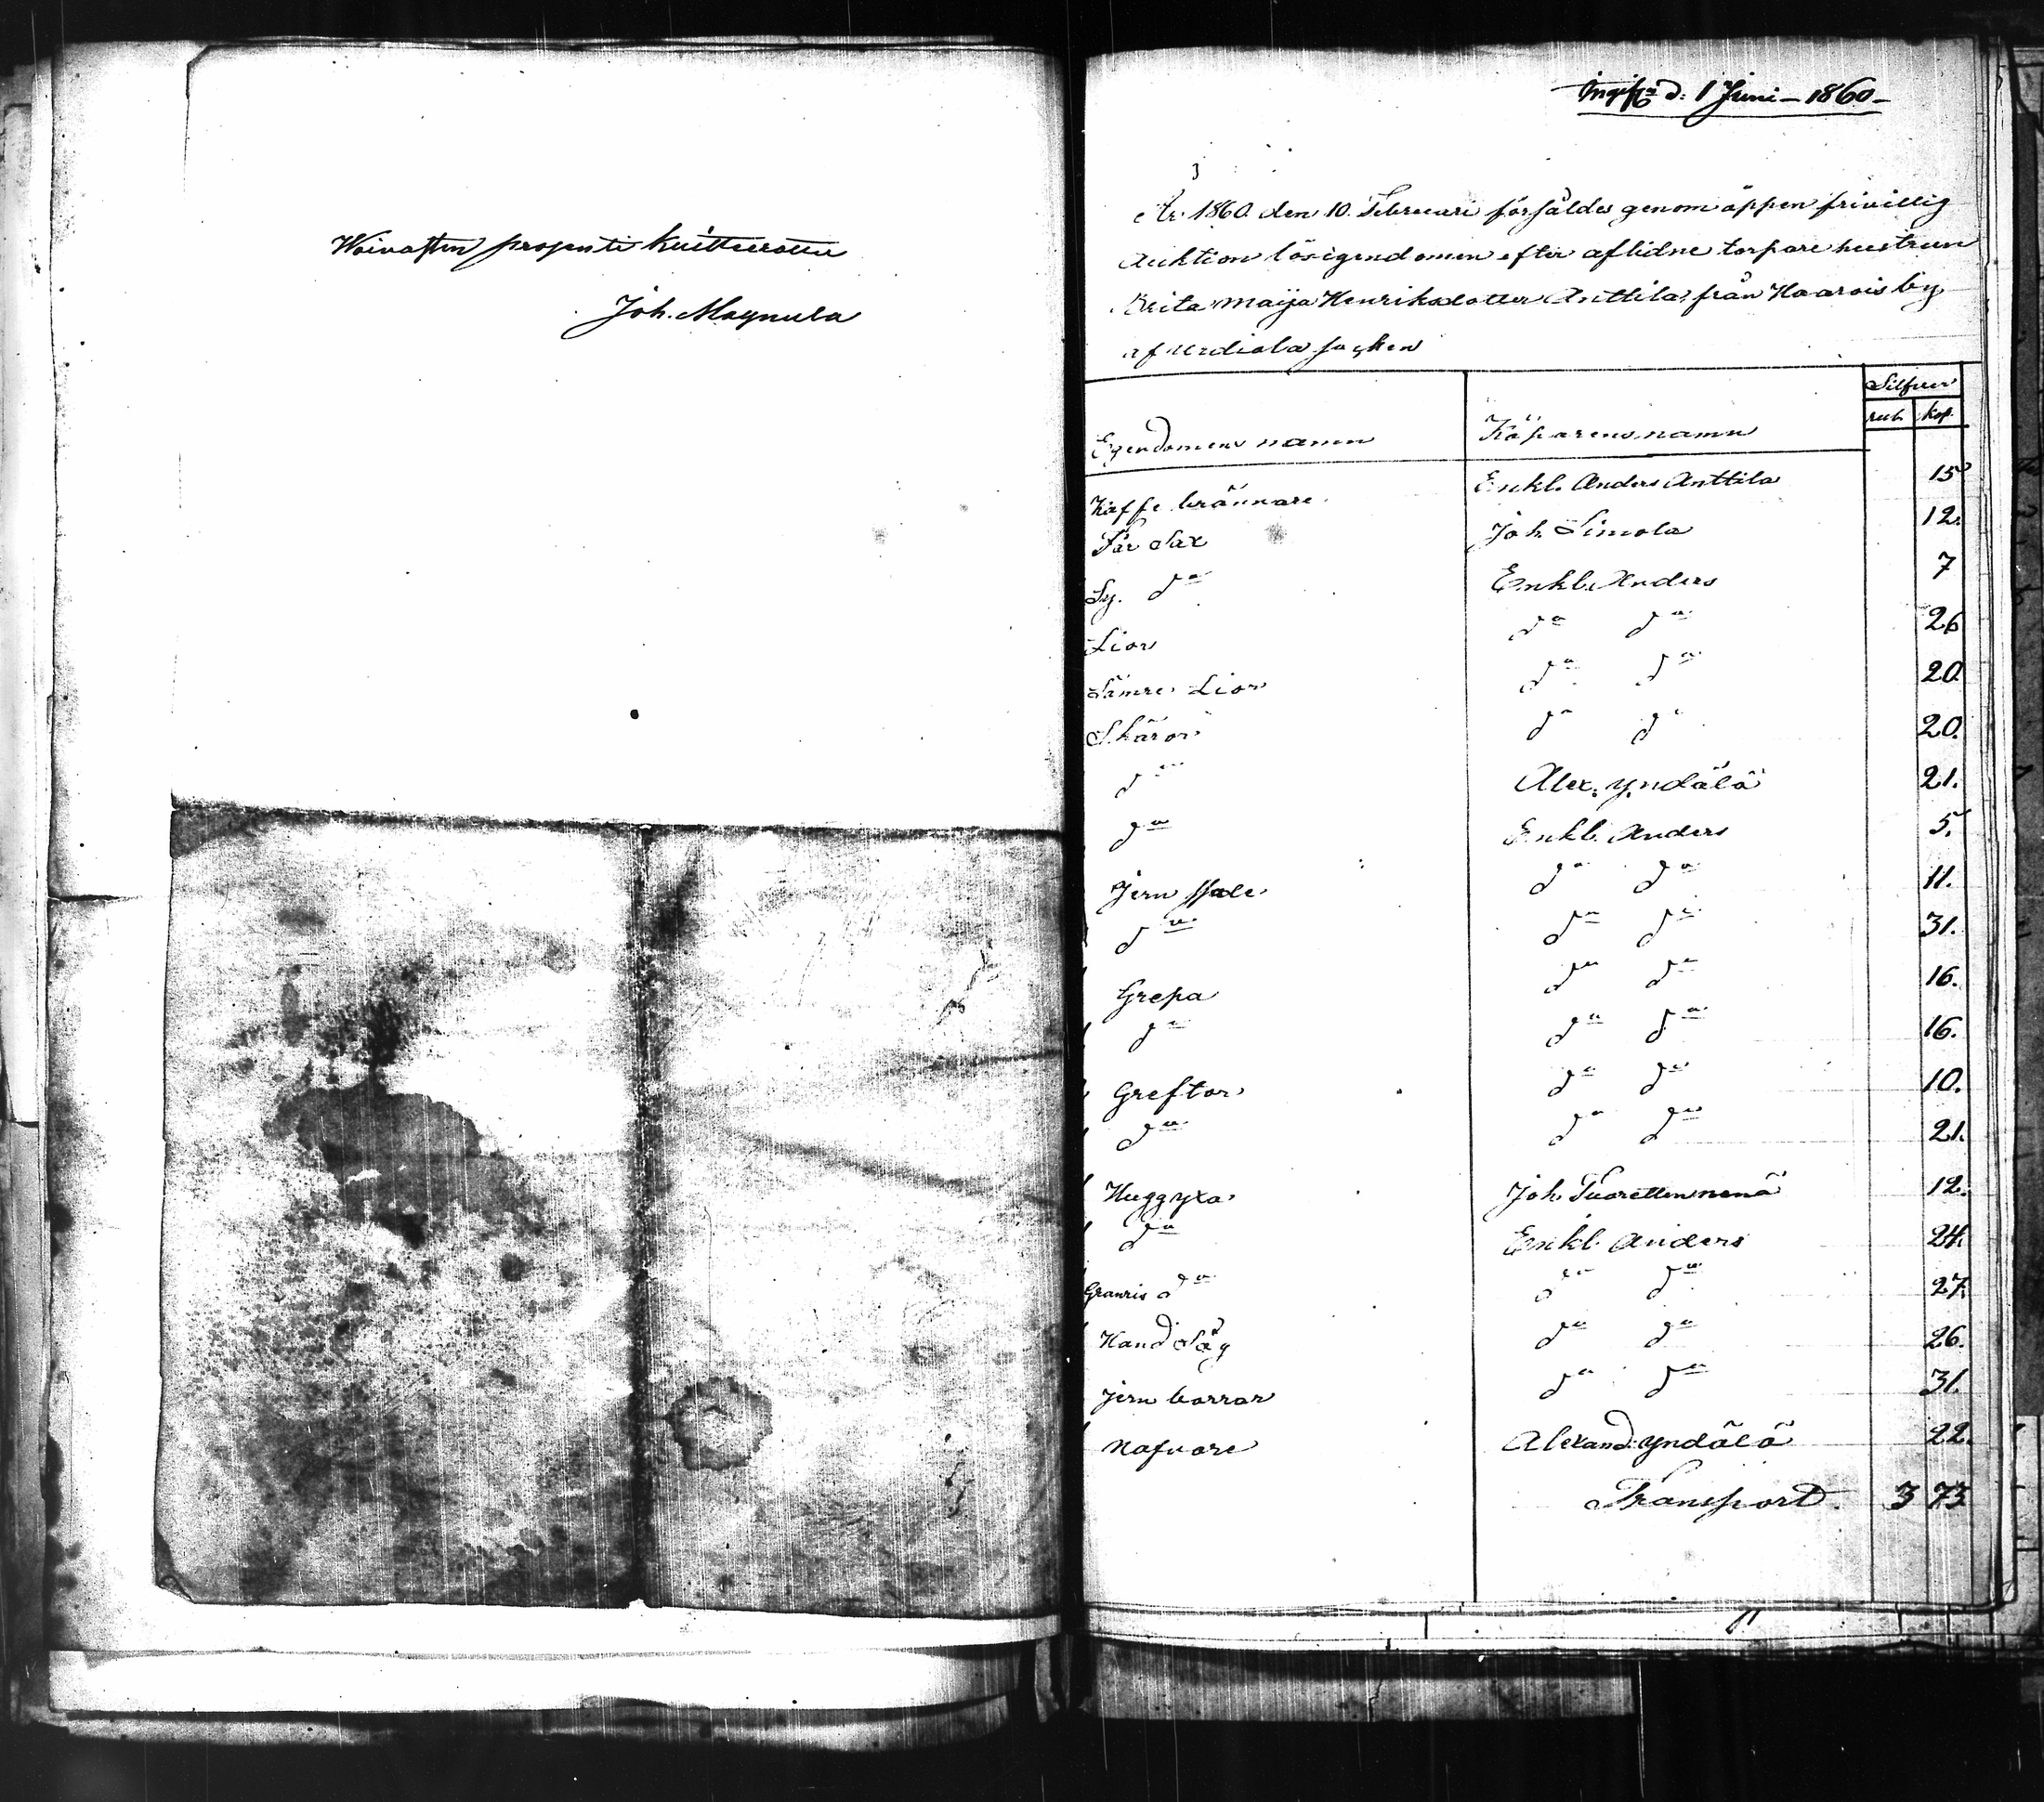 Waivasten prosenti kuitteerattu
Joh. Magnula
d. 1 Juni – 1860 –
År 1860 den 10 Februari försåldes genom öppen frivillig
Auktion lösegendomen efter aflidne torpare hustrun
Brita Maija Henriksdotter Anttila från Haarois by
af Urdiala socken
Silfver
Egendomens namn Köparens namn rub. kop.
Kaffe brännare Enkl. Anders Anttila 15
Får Sax Joh. Simola 12.
Sy. do Enkl. Anders 7
Lior do do 26
Sämre Lior do do 20.
Skäror do do 20.
do Alex. yndälä 21.
do Enkl. Anders 5.
Jern do do 11.
do do do 31.
Grepa do do 16.
do do do 16.
Greftor do do 10.
do do do 21.
Huggyxa Joh. 12.
do Enkl. Anders 24.
Granris do do do 27.
Hand Såg do do 26.
Jern borrar do do 31.
Nafvare Alexand: yndälä 22.
Transport. 3 73